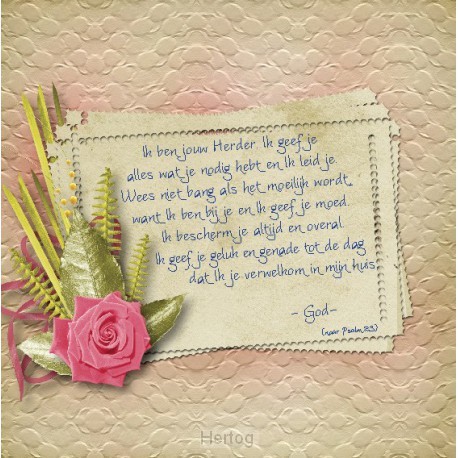 Ik ben jouw Herder. Ik geef je
alles wat je nodig hebt en Ik leid je.
Wees niet bang als het moeilijk wordt,
want Ik ben bij je en Ik geef je moed.
Ik bescherm je altijd en overal.
Ik geef je geluk en genade tot de dag
dat Ik je verwelkom in mijn huis.
- God -
(naar Psalm 23)
Hertog